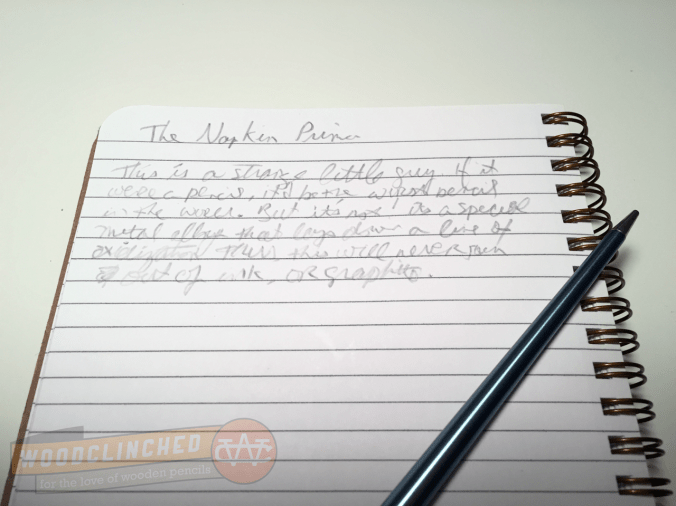 The Napkin Prima
This is a strange little guy. If it
were a pencil, it'd be the worst pencil
in the world. But it's not. its a special
metal alloy that lays down a line of
oxidization Thus this will never run
out of ink, or graphite.
WOODCLINCHED
for the love of wooden pencils